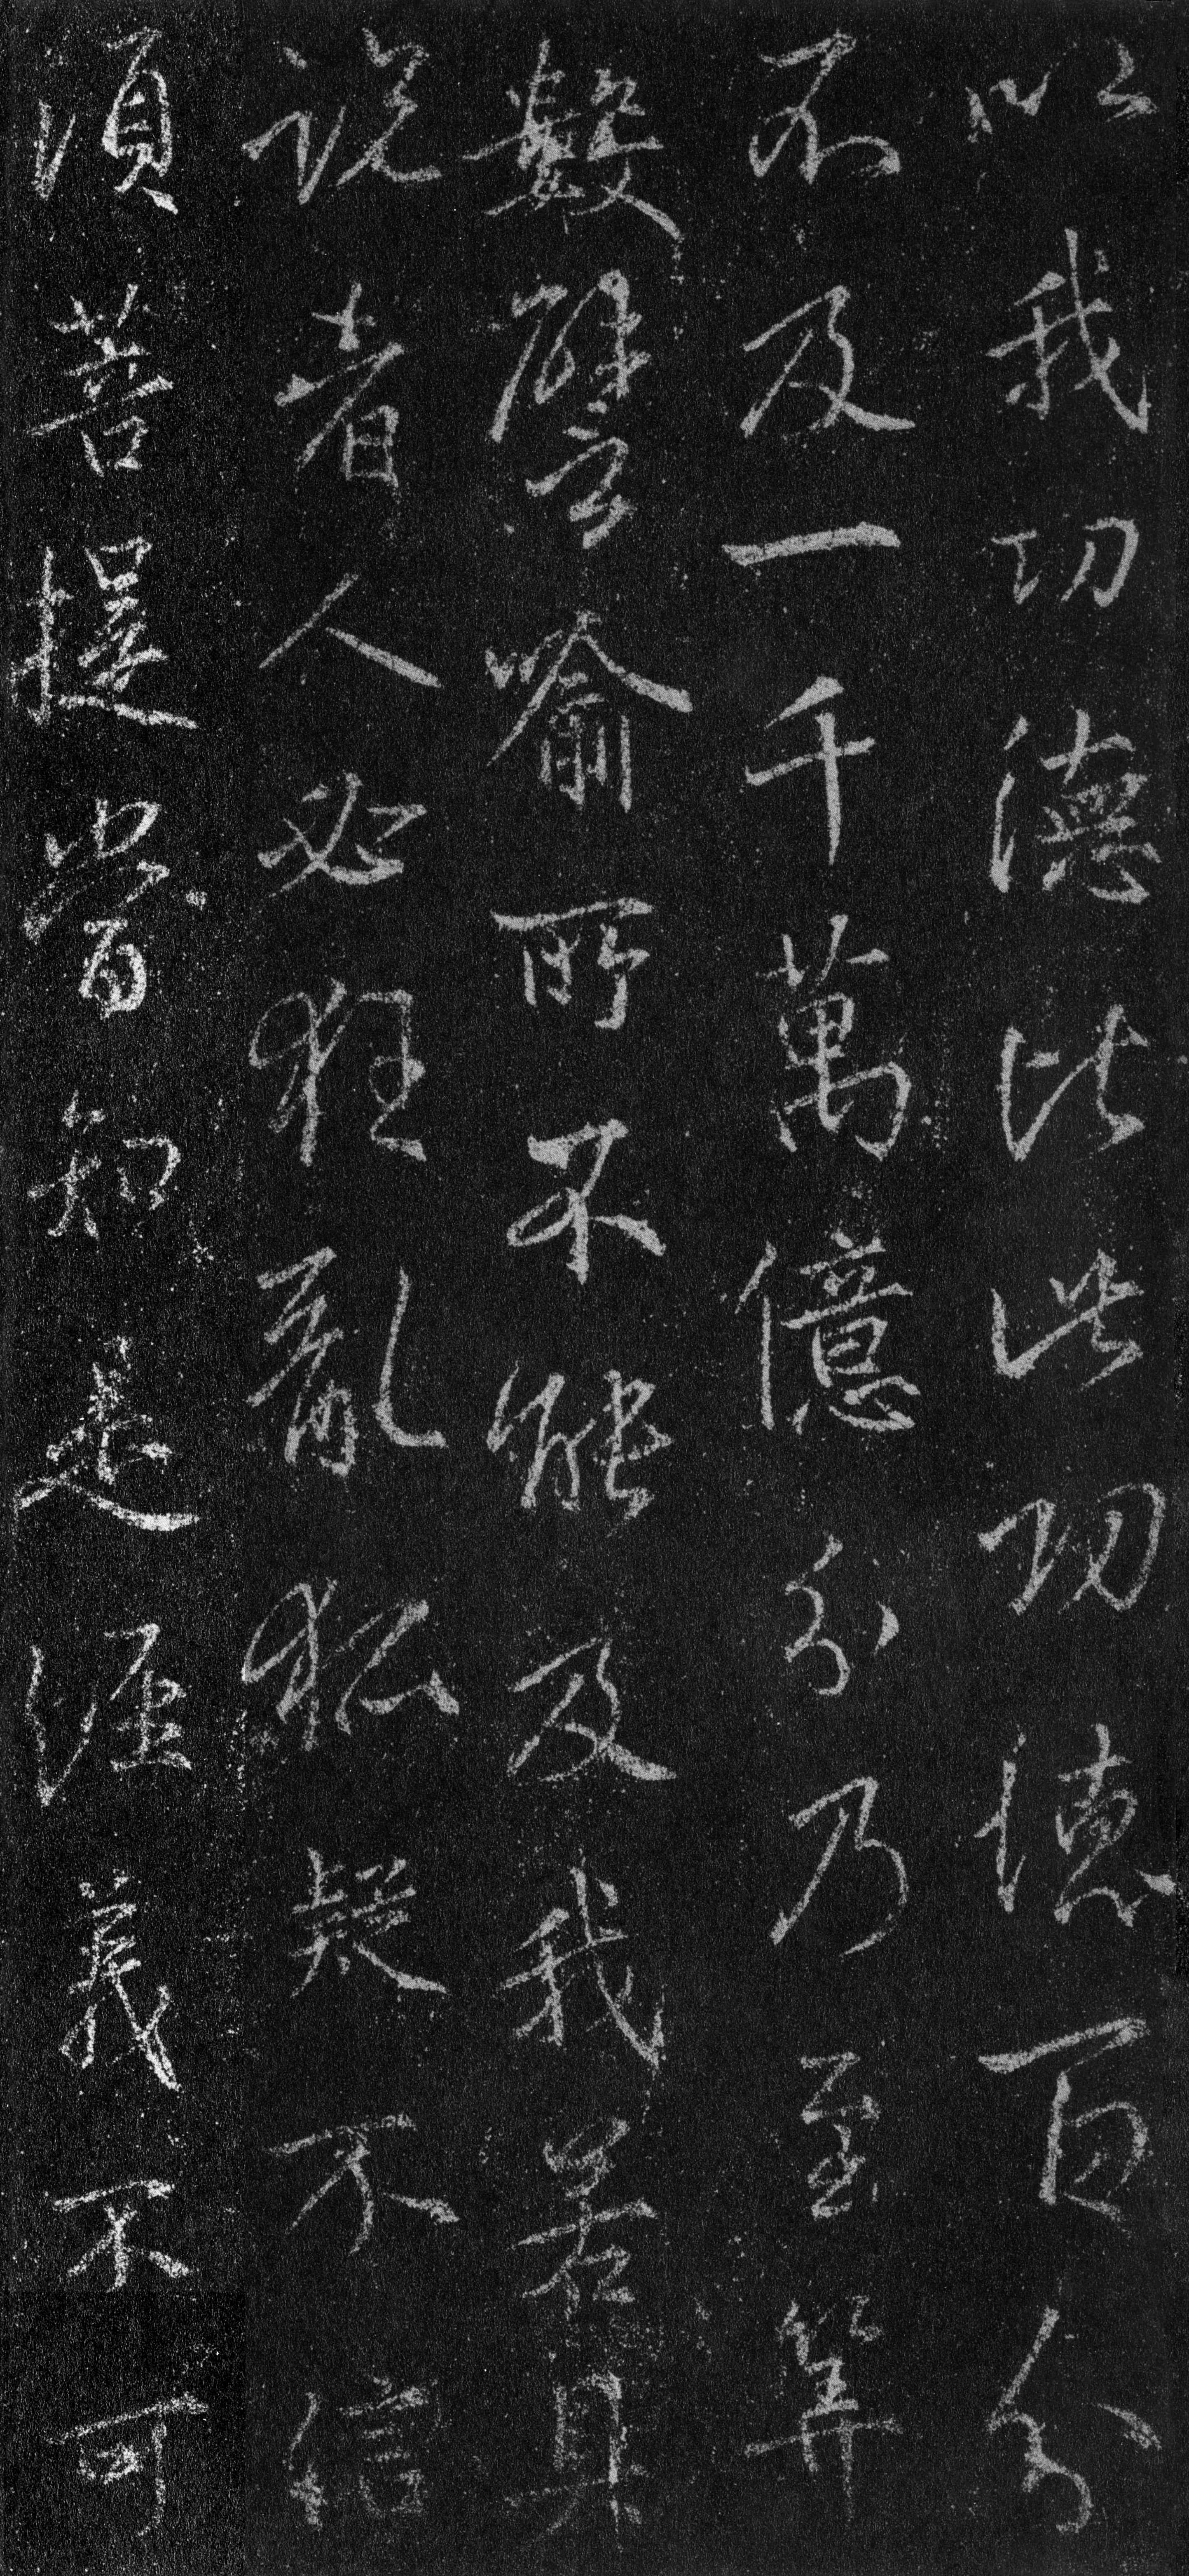 以我功德比此功德百分
不及一千萬億分乃至筭
數譬喻所不能及我若具
說者人必狂亂狐疑不信
須菩提當知是經義不可